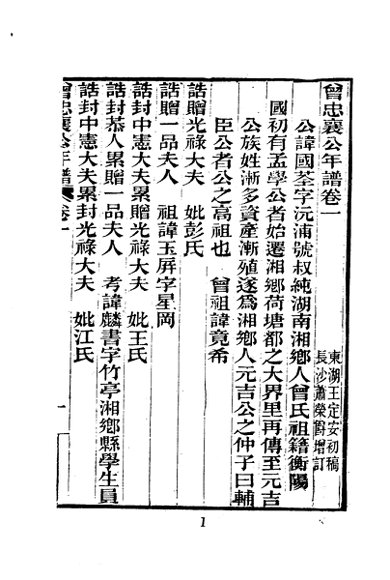 曾忠襄公年譜卷一
東湖王定安初稿
長沙蕭榮爵增訂
公諱國荃字沅浦號叔純湖南湘鄉人曾氏祖籍衡陽
國初有孟學公者始遷湘鄉荷塘都之大界里再傳至元吉
公族姓漸多資產漸殖遂爲湘鄉人元吉公之仲子曰輔
臣公者公之高祖也 曾祖諱竟希
誥贈光祿大夫 妣彭氏
誥贈一品夫人 祖諱玉屏字星岡
誥封中憲大夫累贈光祿大夫 妣王氏
誥封恭人累贈一品夫人 考諱麟書字竹亭湘鄉縣學生員
誥封中憲大夫累封光祿大夫 妣江氏
曾忠襄公年譜 卷一 一
1